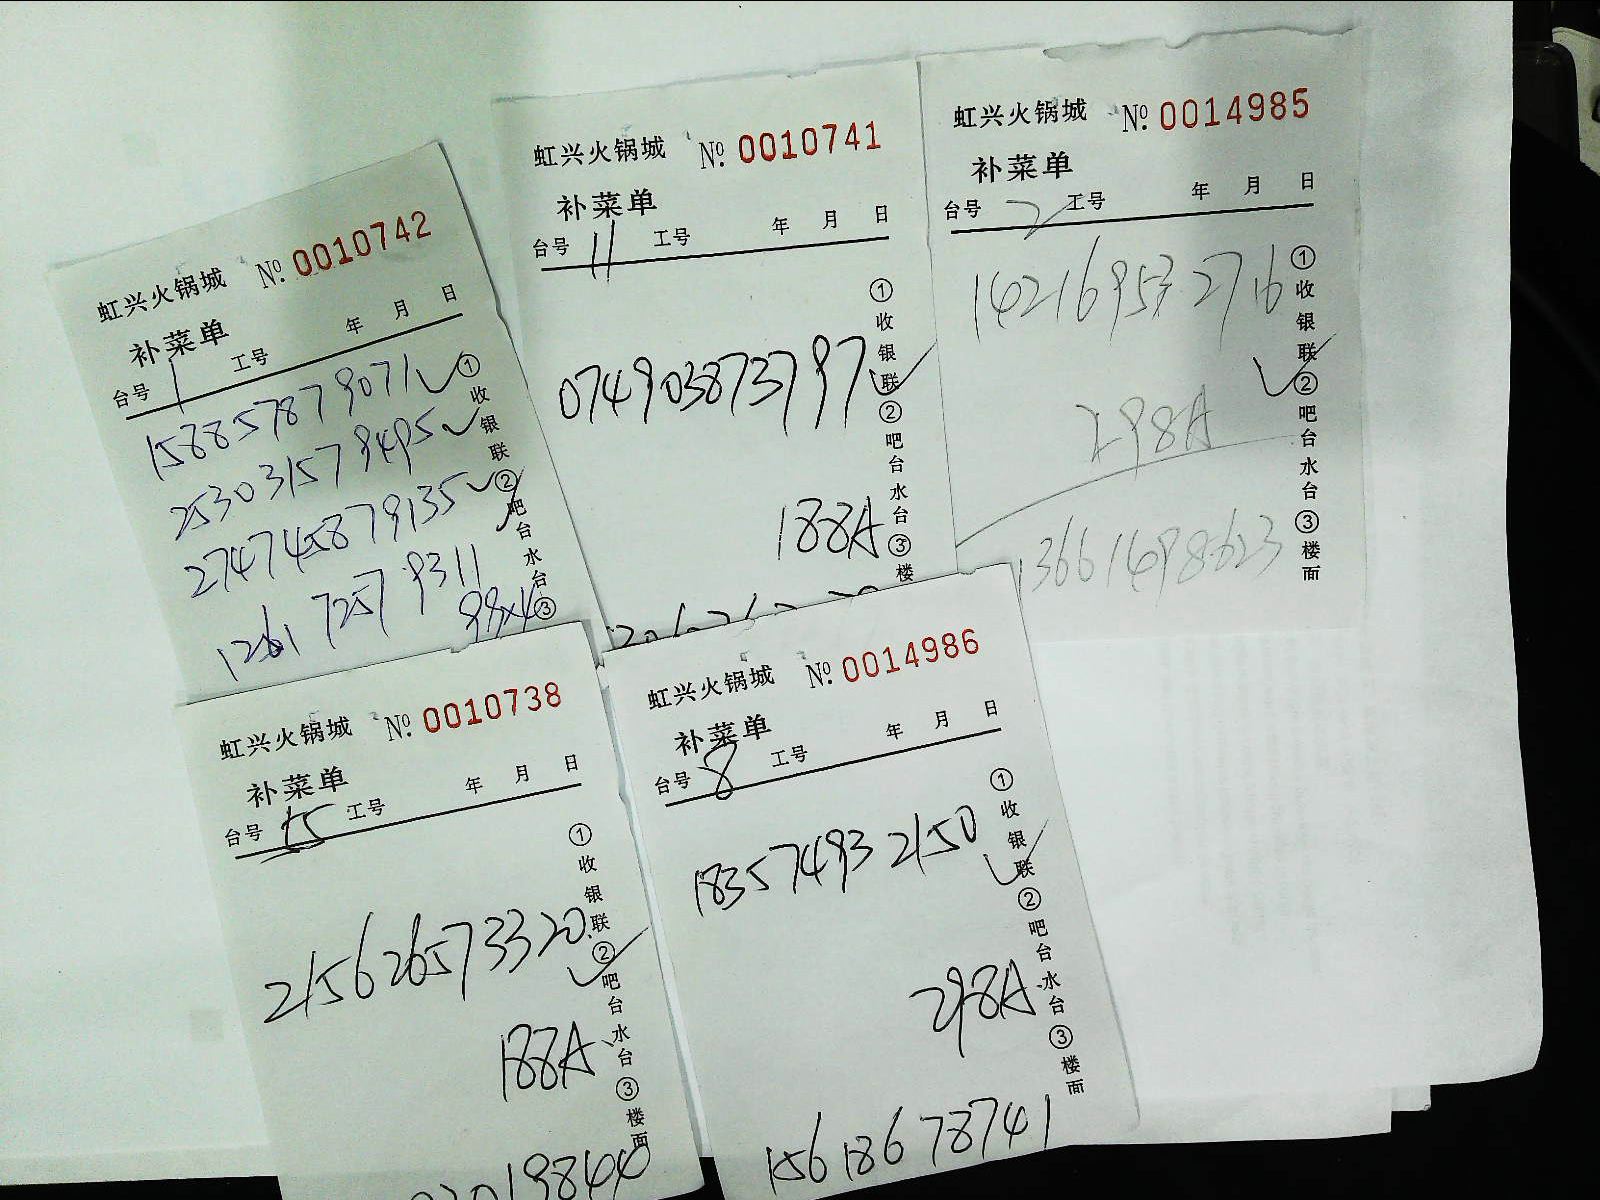 虹兴火锅城 №. 0010742
补菜单
年 月 日
台号 1 工号
158857879071
253031578495
274745879135
126172579311
98x4
①收银联②吧台水台③
虹兴火锅城 №. 0010741
补菜单
年 月 日
台号 11 工号
074903873797
188A
①收银联②吧台水台③楼
虹兴火锅城 №. 0014985
补菜单
年 月 日
台号 2 工号
142169532716
298A
13661498623
①收银联②吧台水台③楼面
虹兴火锅城 №. 0010738
补菜单
年 月 日
台号 15 工号
215626573320
188A
①收银联②吧台水台③楼面
虹兴火锅城 №. 0014986
补菜单
年 月 日
台号 8 工号
183574932150
298A
15618678741
①收银联②吧台水台③楼面